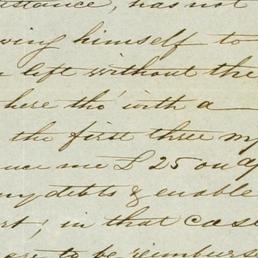 istance, has not
wing himself to
left without the
here tho' with a
the first three m
me £25 on
my debts & enable
in that case
are to be reimburs